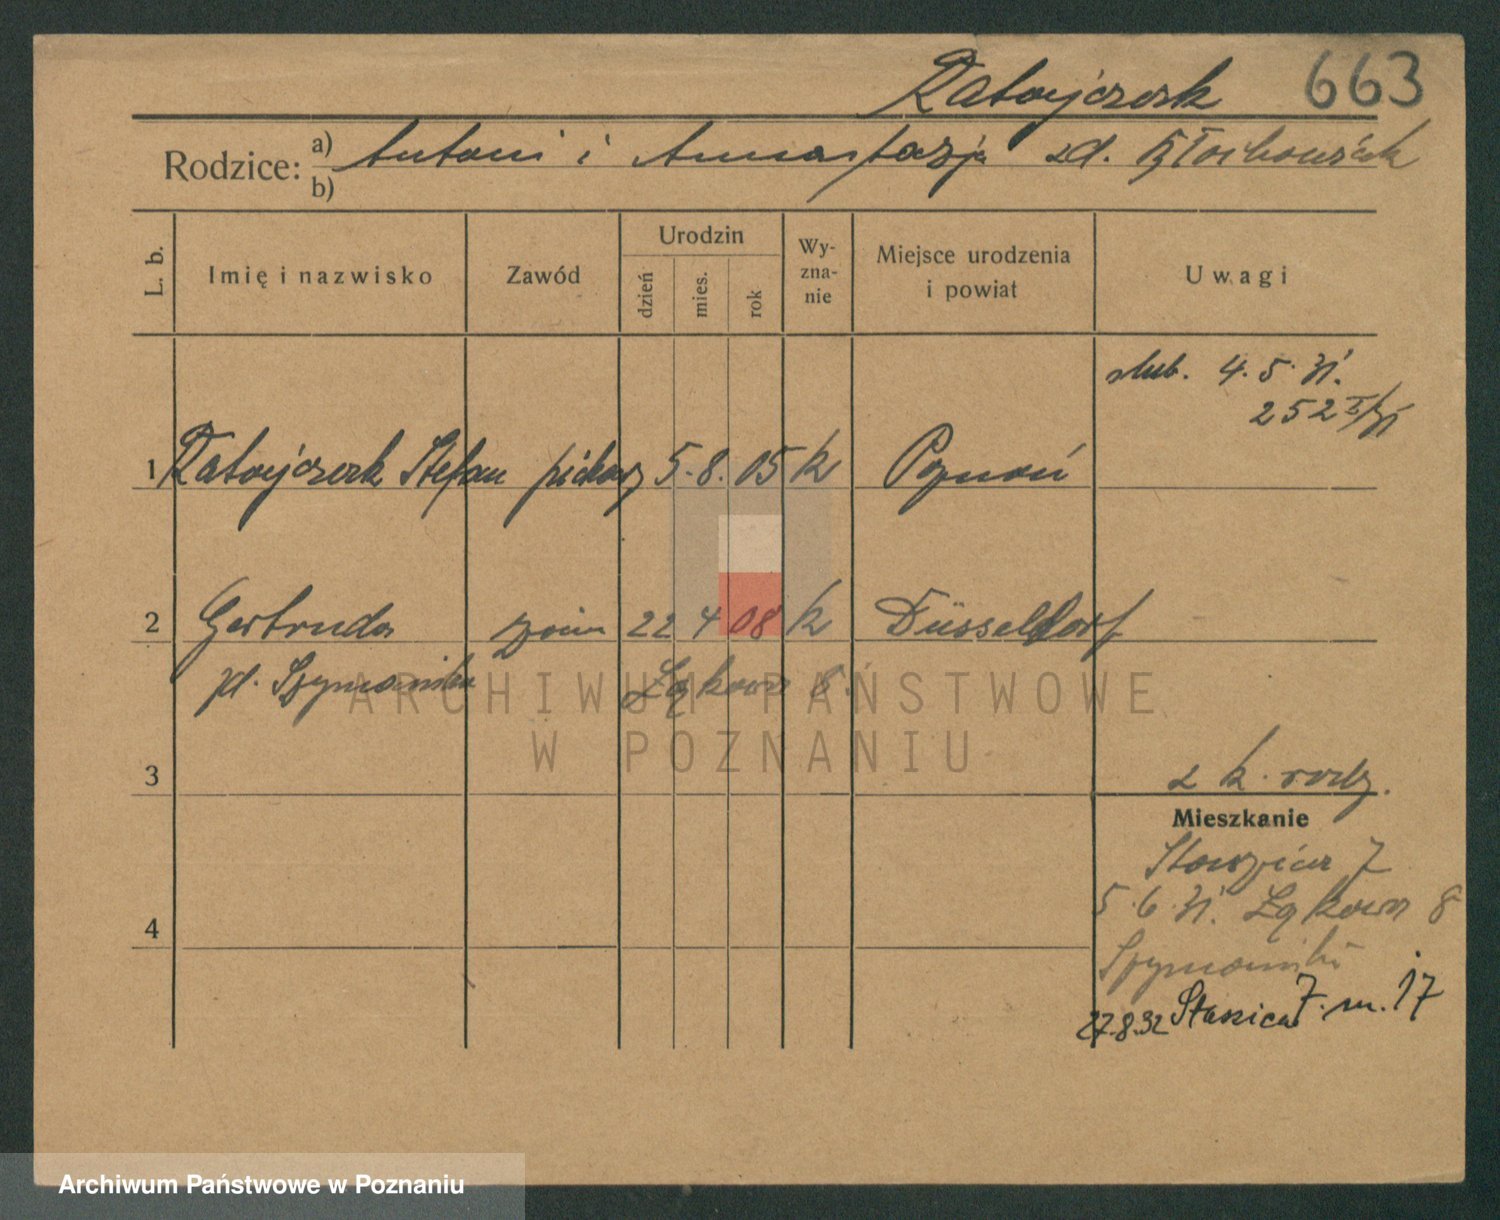 Ratajczak 663
Rodzice: a) Antoni i Anastazja zd.
b)
L. b.
Imię i nazwisko
Zawód
Urodzin
dzień
mies.
rok
Wy-
zna-
nie
Miejsce urodzenia
i powiat
Uwagi
ślub. 4. 5. 31.
252
1 Ratajczak Stefan piekarz 5. 8. 05 k Poznań
2 Gertruda 22 4 08 k Düsseldorf
zd. Szymańska Łąkowa 8.
ARCHIWUM PAŃSTWOWE
W POZNANIU
3
z k. rodz.
Mieszkanie
Staszica 7
4
5. 6. 31. Łąkowa 8
Szymański
27.8.32 Staszica 7. m. 17
Archiwum Państwowe w Poznaniu